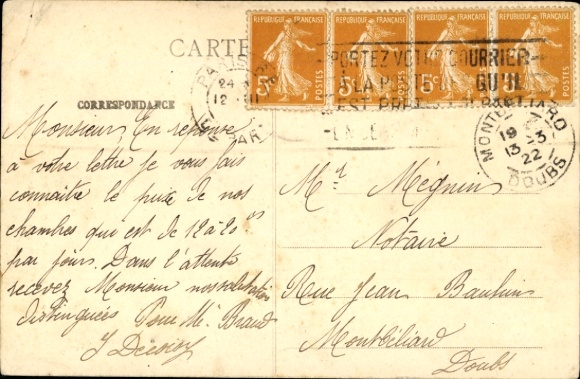 CARTE
REPUBLIQUE FRANÇAISE REPUBLIQUE FRANÇAISE REPUBLIQUE FRANÇAISE REPUBLIQUE FRANÇAISE
5c POSTES 5c POSTES 5c POSTES POSTES
PORTEZ VOTRE COURRIER
A LA POSTE QU'IL
EST PRET
PARIS
24
12
GARE
MONTBELIARD
19
13-3
22
DOUBS
CORRESPONDANCE
Monsieur En réponse
à votre lettre je vous fais
connaitre le prix de nos
chambres qui est de 12 à 20 frs
par jours. Dans l'attente
recevez Monsieur nos salutations
distinguées Pour Mr
Mr Mégnin
Notaire
Rue Jean Bauhin
Montbéliard
Doubs